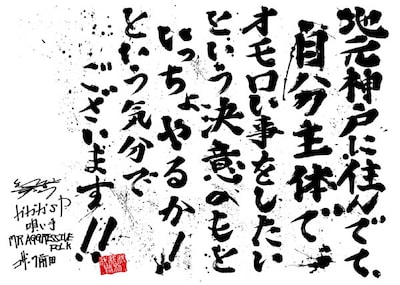 地元神戸に住んでて、
自分主体で
オモロい事をしたい
という決意のもと
いっちょやるか!
という気分で
ございます!!
唄い手
MR AGGRESSIVE
FOLK